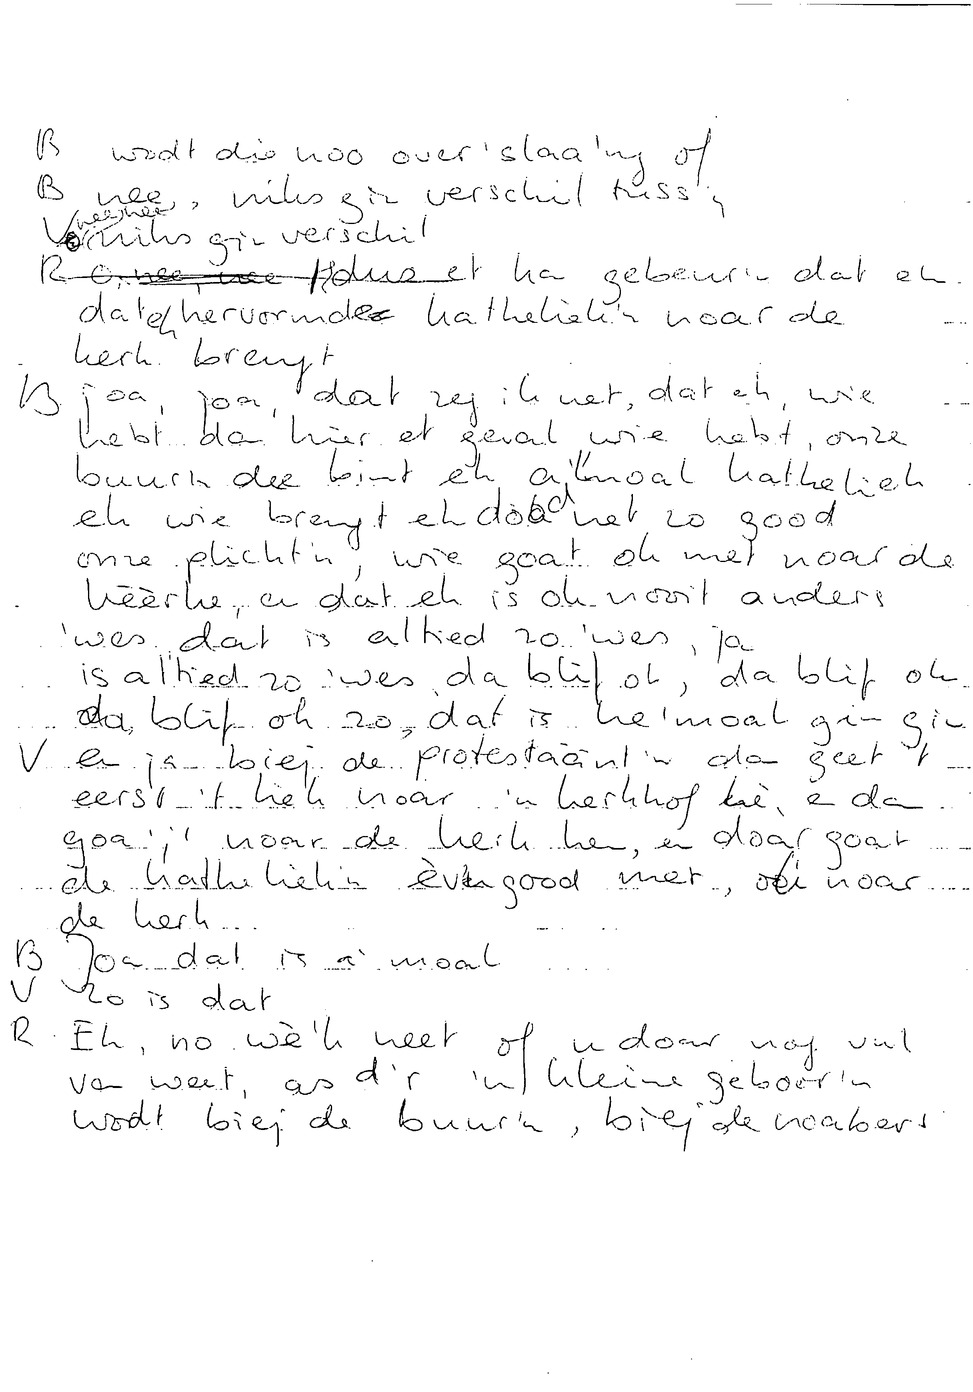 B wodt die noo over'slaa'ng of
B nee, niks gin verschil tuss'n
V nee nee niks gin verschil
R O, nee, nee dus et ka gebeur'n dat eh
dat eh hervormde katheliek'n noar de
kerk brengt
B joa, joa, dat zeg ik net, dat eh, wie
hebt da hier et geval wie hebt, onze
buurn dee bint eh a'moal katheliek
eh wie brengt eh dood net zo good
onze plicht'n, wie goat ok met noar de
kèèrke, en dat eh is ok nooit anders
'wes dat is altied zo 'wes, ja
is altied zo 'wes da blif ok, da blif ok
da blif ok zo, dat is he'moal gin gin
V en ja biej de protestäänt'n da geet 't
eerst 't liek noar 'n kerkhof hè, e da
goa'j' noar de kerk hen, en doar goat
de katheliek'n èvengood met, noar
de kerk
B Joa dat is a'moal
V zo is dat
R Eh, no wè'k neet of u doar nog vul
van weet, as d'r 'n kleine geboor'n
wodt biej de buur'n, biej de noabers